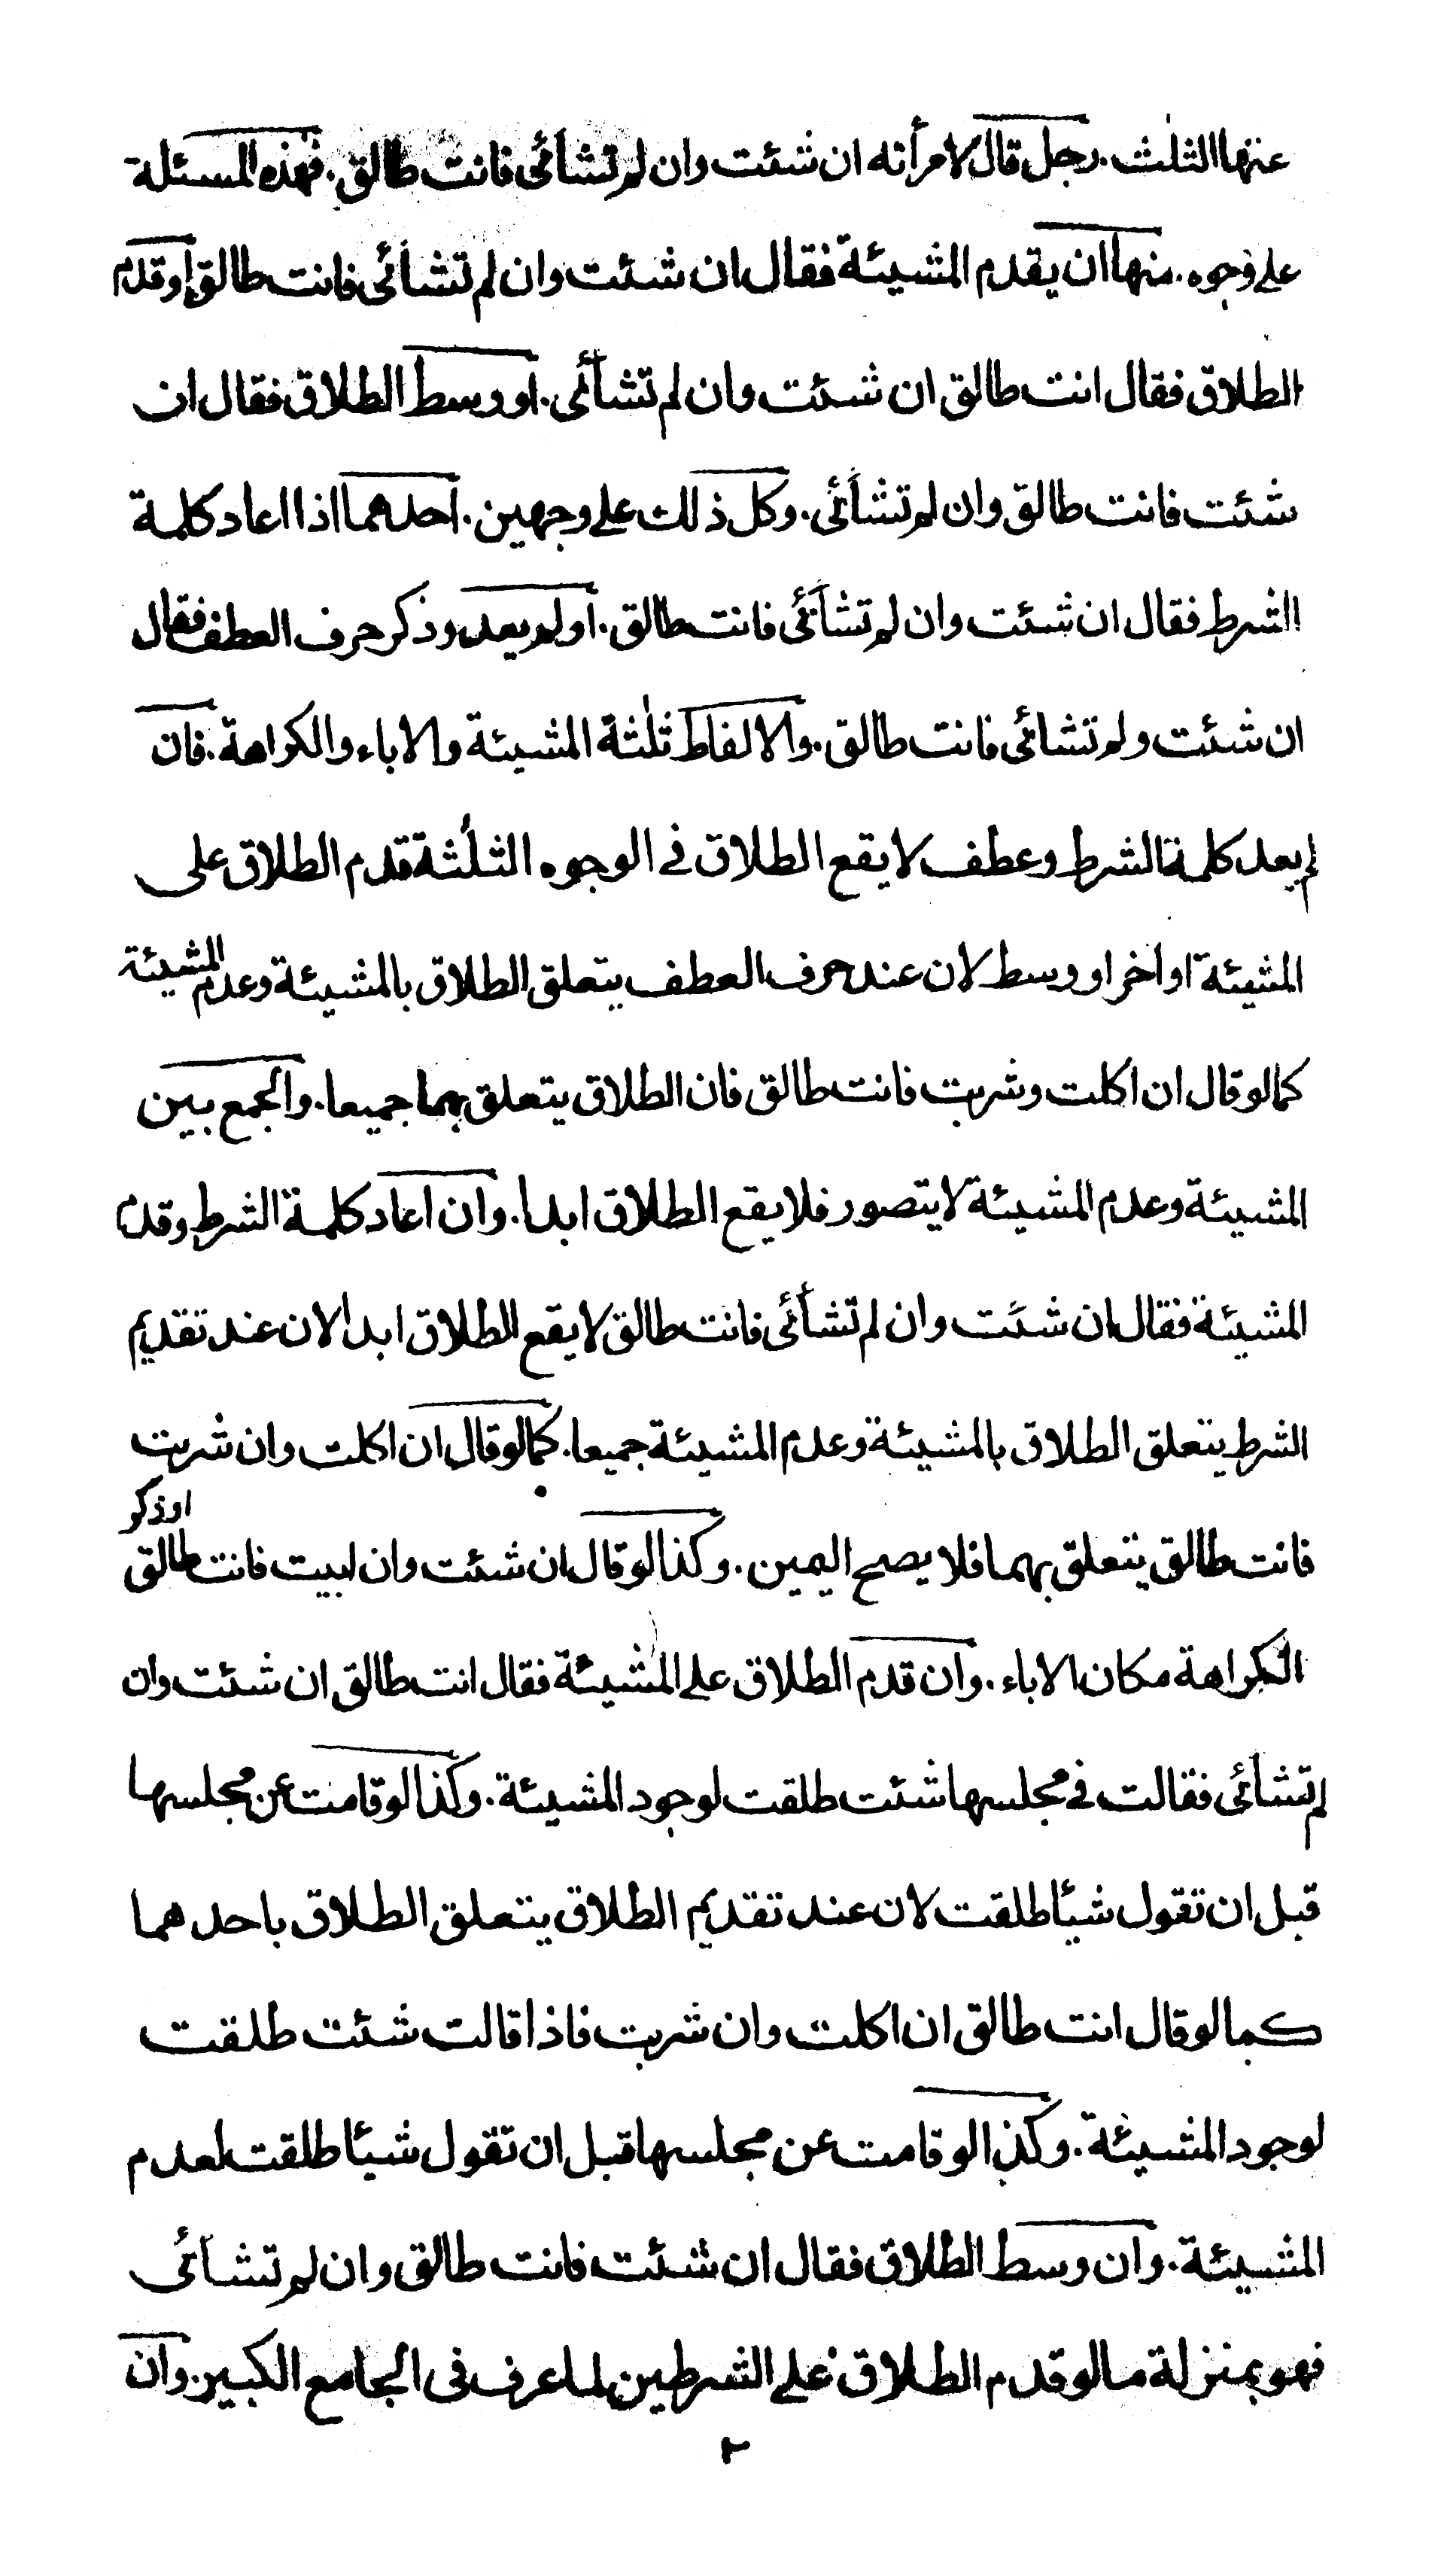 عنها الثلث. رجل قال لامرأته ان شئت وان لم تشائى فانت طالق. فهذه المسئلة
على وجوه. منها ان يقدم المشيئة فقال ان شئت وان لم تشائى فانت طالق او قدم
الطلاق فقال انت طالق ان شئت وان لم تشائى. او وسط الطلاق فقال ان
شئت فانت طالق وان لم تشائى. وكل ذلك على وجهين. احدهما اذا اعاد كلمة
الشرط فقال ان شئت وان لم تشائى فانت طالق. او لم يعد وذكر حرف العطف فقال
ان شئت ولم تشائى فانت طالق. والالفاظ ثلثة المشيئة والاباء والكراهة. فان
لم يعد كلمة الشرط وعطف لا يقع الطلاق فى الوجوه الثلثة قدم الطلاق على
المشيئة او اخر او وسط لان عند حرف العطف يتعلق الطلاق بالمشيئة وعدم المشيئة
كما لو قال ان اكلت وشربت فانت طالق فان الطلاق يتعلق بهما جميعا. والجمع بين
المشيئة وعدم المشيئة لا يتصور فلا يقع الطلاق ابدا. وان اعاد كلمة الشرط وقدم
المشيئة فقال ان شئت وان لم تشائى فانت طالق لا يقع الطلاق ابدا لان عند تقديم
الشرط يتعلق الطلاق بالمشيئة وعدم المشيئة جميعا. كما لو قال ان اكلت وان شربت
فانت طالق يتعلق بهما فلا يصح اليمين. وكذا لو قال ان شئت وان ابيت فانت طالق او ذكر
الكراهة مكان الاباء. وان قدم الطلاق على المشيئة فقال انت طالق ان شئت وان
لم تشائى فقالت فى مجلسها شئت طلقت لوجود المشيئة. وكذا لو قامت عن مجلسها
قبل ان تقول شيئا طلقت لان عند تقديم الطلاق يتعلق الطلاق باحدهما
كما لو قال انت طالق ان اكلت وان شربت فاذا قالت شئت طلقت
لوجود المشيئة. وكذا لو قامت عن مجلسها قبل ان تقول شيئا طلقت لعدم
المشيئة. وان وسط الطلاق فقال ان شئت فانت طالق وان لم تشائى
فهو بمنزلة ما لو قدم الطلاق على الشرطين لما عرف فى الجامع الكبير. وان
٢